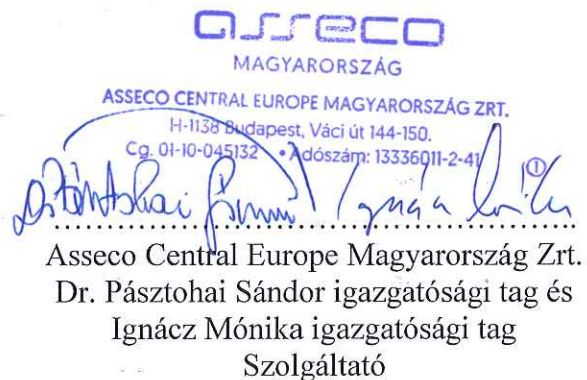 asseco
MAGYARORSZÁG
ASSECO CENTRAL EUROPE MAGYARORSZÁG ZRT.
H-1138 Budapest, Váci út 144-150.
Cg. 01-10-045132 • Adószám: 13336011-2-41
①
Asseco Central Europe Magyarország Zrt.
Dr. Pásztohai Sándor igazgatósági tag és
Ignácz Mónika igazgatósági tag
Szolgáltató